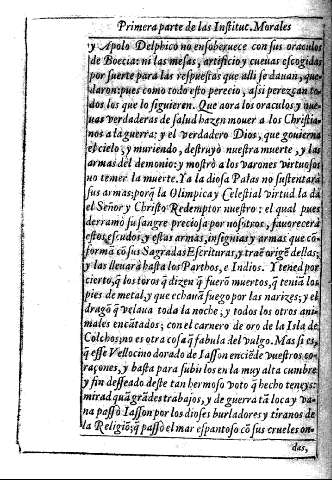 Primera parte de las Institut. Morales
y Apolo Delphico no ensoberuece con sus oraculos
de Boecia: ni las mesas, artificio y cueuas escogidas
por suerte para las respuestas que alli se dauan, que
daron: pues como todo esto perecio, assi perezcan to
dos los que lo siguieren. Que aora los oraculos y nue
uas verdaderas de salud hazen mouer a los Christia-
nos a la guerra: y el verdadero Dios, que gouierna
el cielo, y muriendo, destruyò nuestra muerte, y las
armas del demonio: y mostrò a los varones virtuosos
no temer la muerte. Ya la diosa Palas no sustentarà
sus armas: porq̃ la Olimpica y Celestial virtud la dà
el Señor y Christo Redemptor nuestro: el qual pues
derramò su sangre preciosa por nosotros, fauorecerà
estos escudos, y estas armas, insignias y armas que cõ-
formã cõ sus Sagradas Escrituras, y traẽ origẽ dellas;
y las lleuarà hasta los Parthos, e Indios. Y tened por
cierto, q̃ los toros q̃ dizen q̃ fuerõ muertos, q̃ teniã los
pies de metal, y que echauã fuego por las narizes; y el
dragõ q̃ velaua toda la noche; y todos los otros ani-
males encãtados; con el carnero de oro de la Isla de
Colchos, no es otra cosa q̃ fabula del vulgo. Mas si es,
q̃ esse Vellocino dorado de Iasson enciẽde vuestros co-
raçones, y basta para subilos en la muy alta cumbre
y fin desseado deste tan hermoso voto q̃ hecho teneys:
mirad quã grãdes trabajos, y de guerra tã loca y va-
na passò Iasson por los dioses burladores y tiranos de
la Religiõ; q̃ passò el mar espantoso cõ sus crueles on-
das,